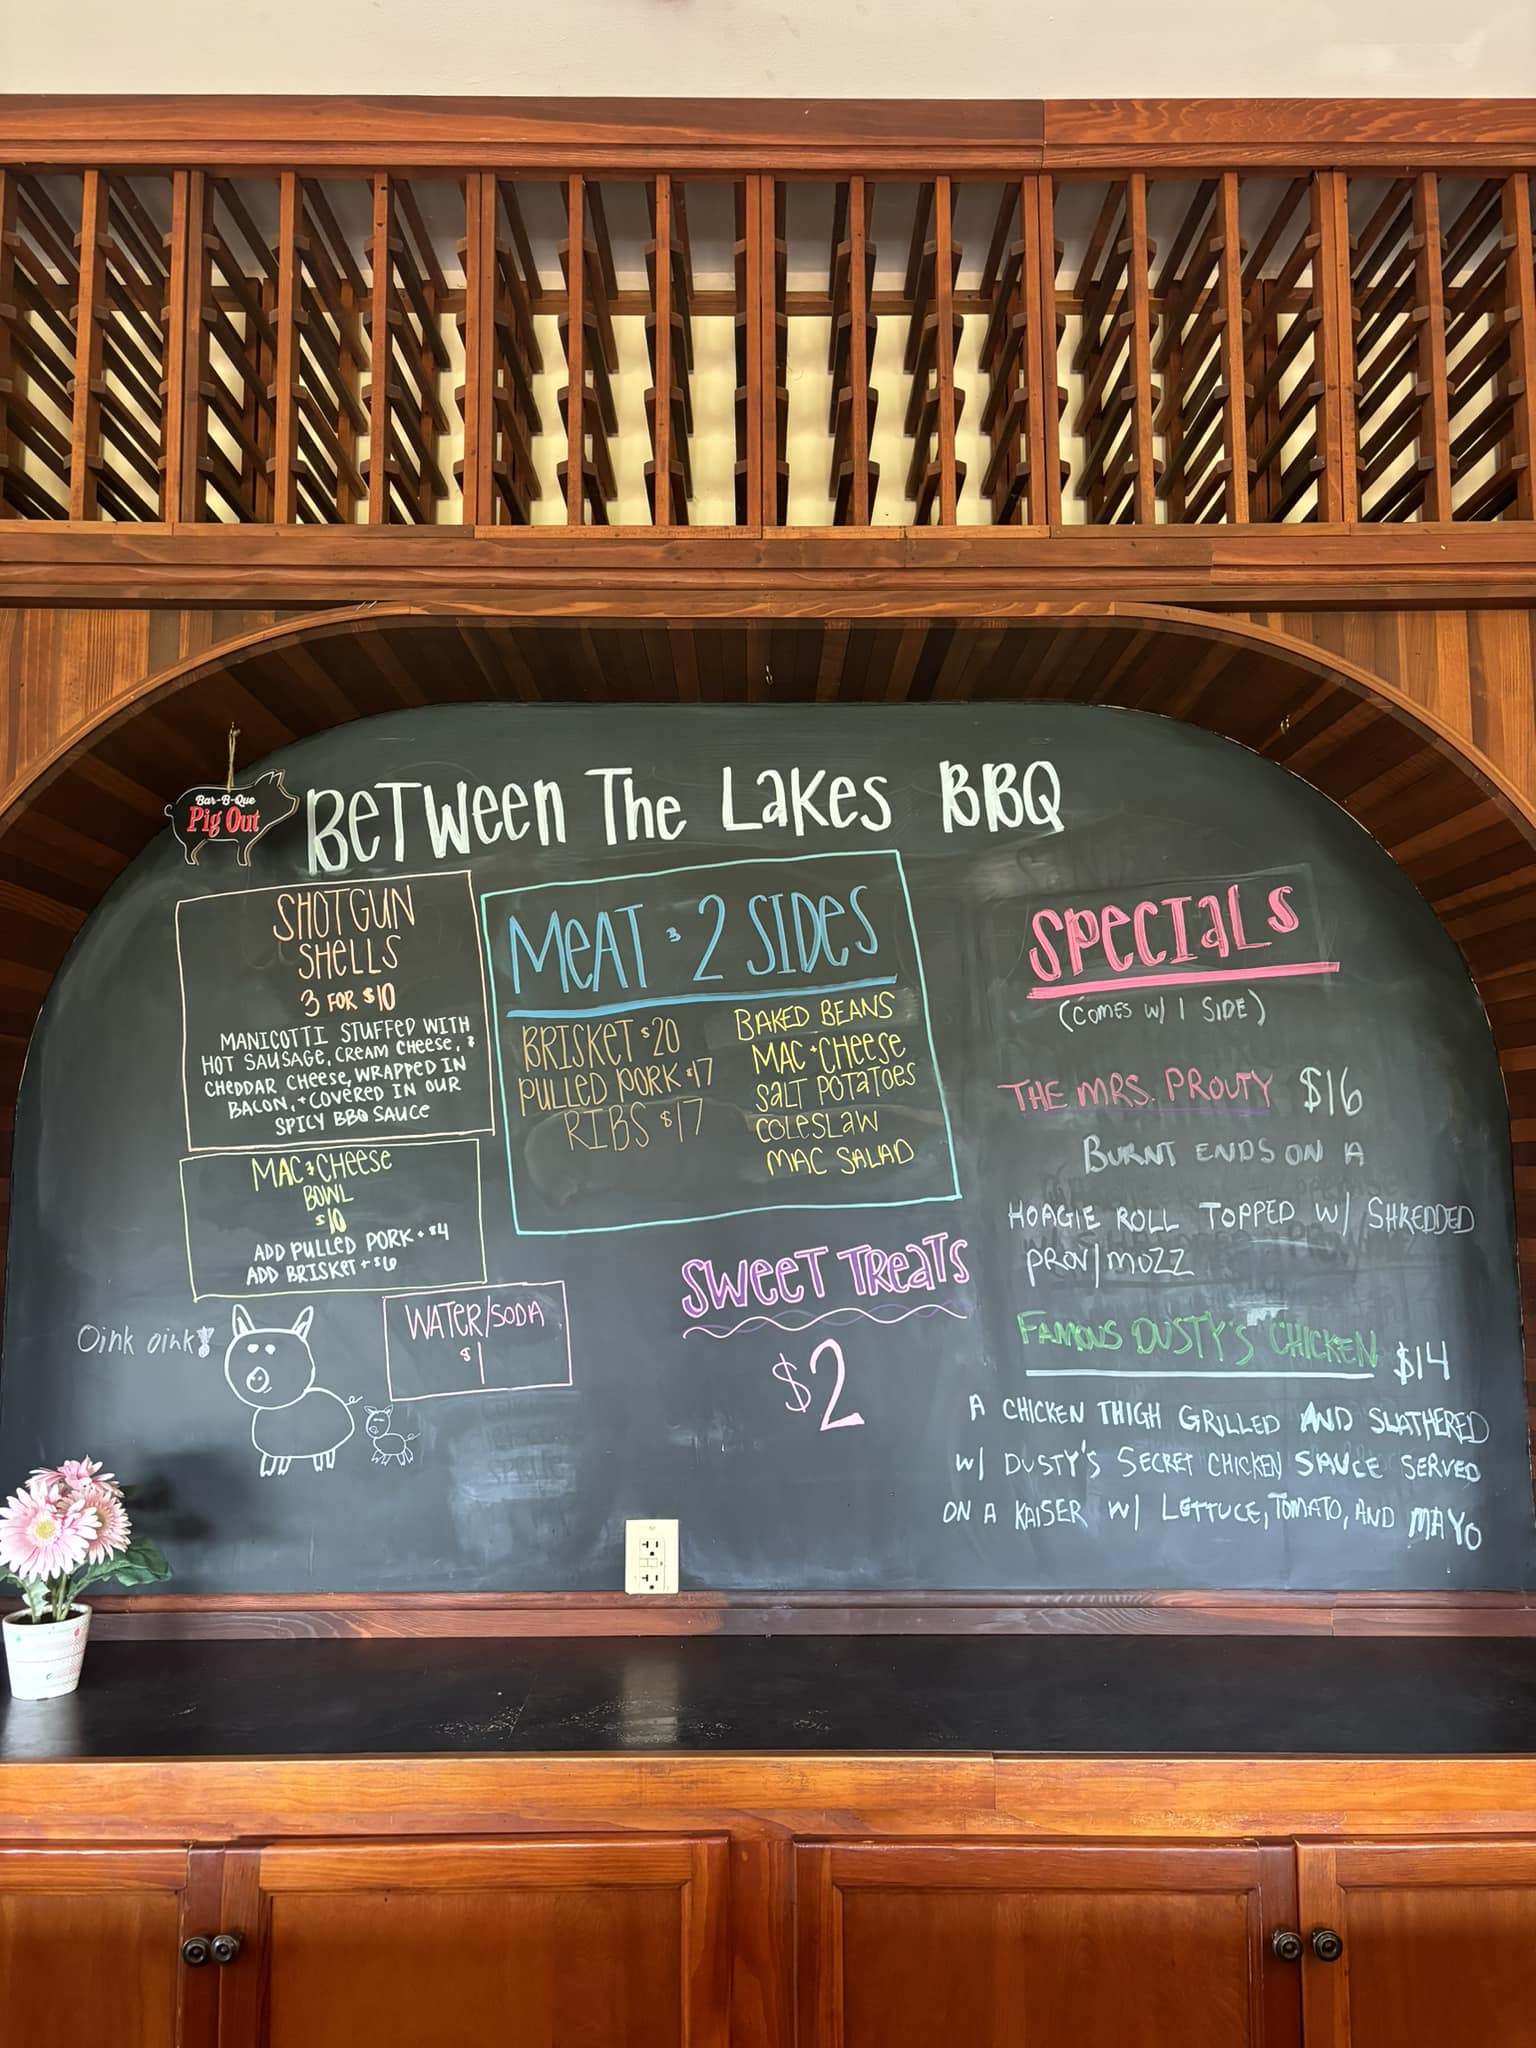 Bar-B-Que
Pig Out
BETWEEN THE LAKES BBQ
SHOTGUN
SHELLS
3 FOR $10
MANICOTTI STUFFED WITH
HOT SAUSAGE, CREAM CHEESE, &
CHEDDAR CHEESE, WRAPPED IN
BACON, + COVERED IN OUR
SPICY BBQ SAUCE
MAC & CHEESE
BOWL
$10
ADD PULLED PORK + $4
ADD BRISKET + $6
Oink oink!
WATER/SODA
$1
MEAT & 2 SIDES
BRISKET $20
PULLED PORK $17
RIBS $17
BAKED BEANS
MAC + CHEESE
SALT POTATOES
COLESLAW
MAC SALAD
SWEET TREATS
$2
SPECIALS
(COMES W/ 1 SIDE)
THE MRS. PROUTY $16
BURNT ENDS ON A
HOAGIE ROLL TOPPED W/ SHREDDED
PROV/MOZZ
FAMOUS DUSTY'S CHICKEN $14
A CHICKEN THIGH GRILLED AND SLATHERED
W/ DUSTY'S SECRET CHICKEN SAUCE SERVED
ON A KAISER W/ LETTUCE, TOMATO, AND MAYO